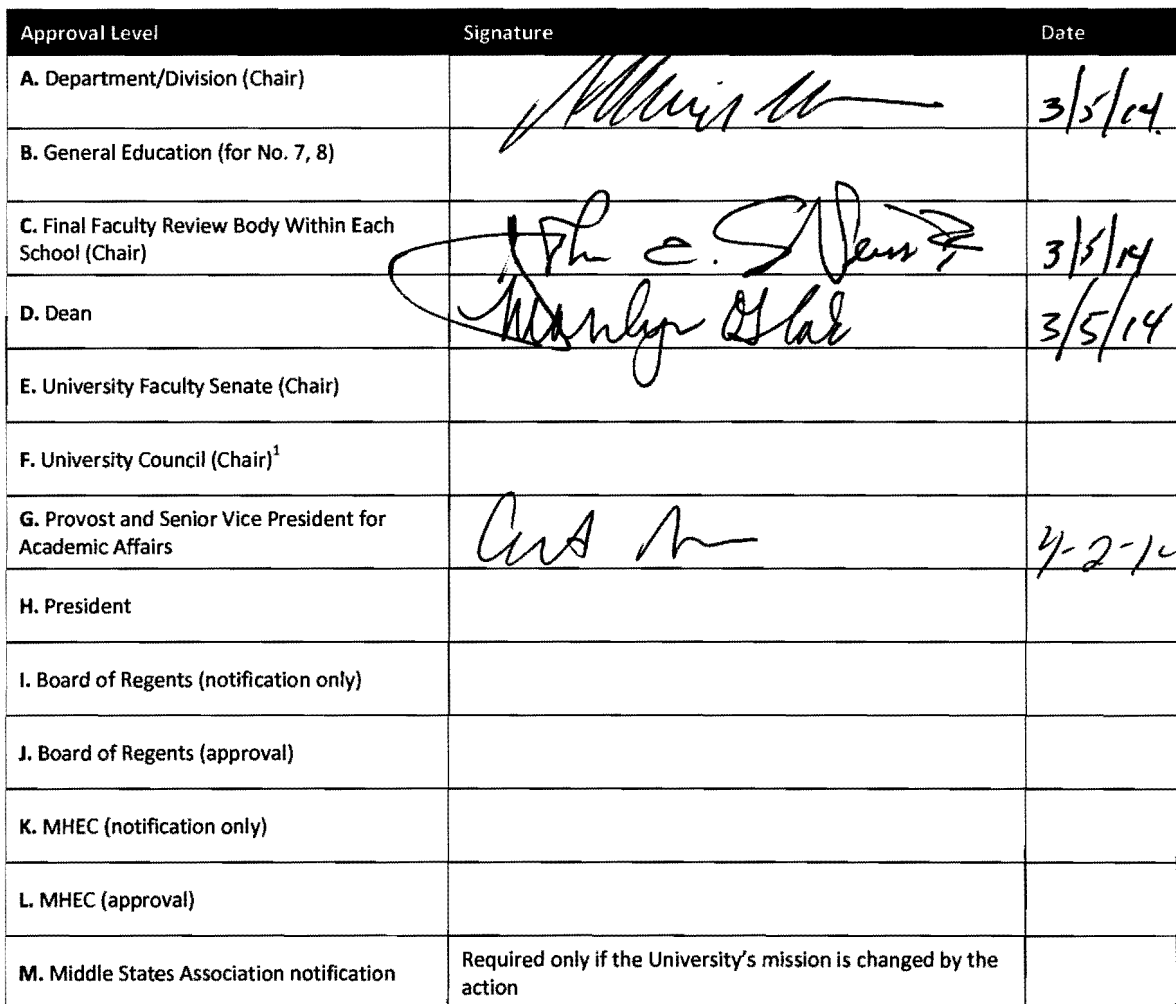 Approval Level Signature Date
A. Department/Division (Chair) 3/5/14
B. General Education (for No. 7, 8)
C. Final Faculty Review Body Within Each
School (Chair) John E. 3/5/14
D. Dean Marilyn 3/5/14
E. University Faculty Senate (Chair)
F. University Council (Chair)1
G. Provost and Senior Vice President for
Academic Affairs 4-2-1
H. President
I. Board of Regents (notification only)
J. Board of Regents (approval)
K. MHEC (notification only)
L. MHEC (approval)
M. Middle States Association notification Required only if the University's mission is changed by the
action